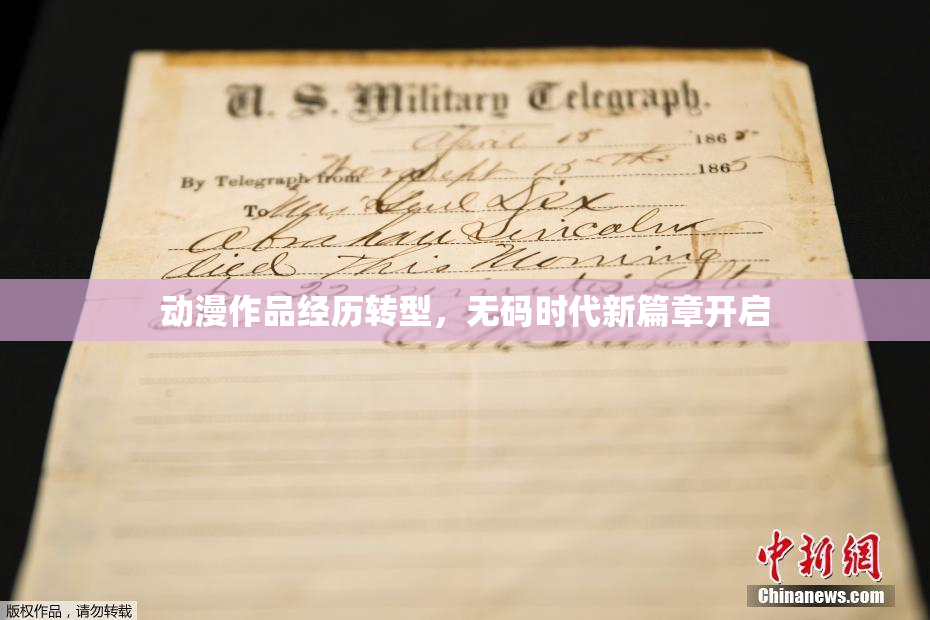 U. S. Military Telegraph.
April 15 1865
By Telegraph from War Dept 15th 1865
To Maj Genl Dix
Abraham Lincoln
died This Morning
at 22 minutes after
动漫作品经历转型，无码时代新篇章开启
中新网
Chinanews.com
版权作品，请勿转载